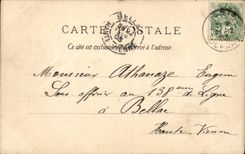 CARTE POSTALE
Ce côté est exclusivement réservé à l'adresse.
BELLAC
Monsieur Athanaze Eugène
Sous officier au 138ème de Ligne
à Bellac
Haute-Vienne